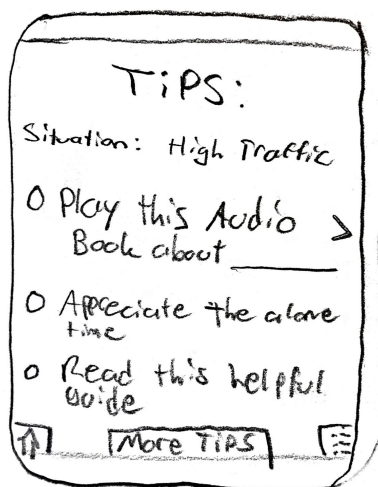 TiPS:
Situation: High Traffic
O Play this Audio
Book about ______
O Appreciate the alone
time
O Read this helpful
guide
More TiPS